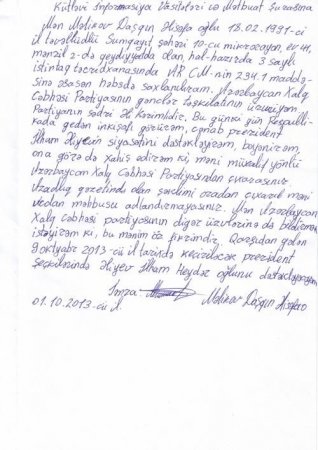 Kütləvi İnformasiya Vasitələri və Mətbuat Şurasına
Mən Məlikov Daşqın Hisəfa oğlu 18.02.1991-ci
il təvəllüdlü Sumqayıt şəhəri 10-cu mikrorayon, ev 41,
mənzil 2-də qeydiyyatda olan, hal-hazırda 3 saylı
istintaq təcridxanasında AR CM-nin 234.1 maddə-
sinə əsasən həbsdə saxlanılıram. Azərbaycan Xalq
Cəbhəsi Partiyasının gənclər təşkilatının üzvüyəm
Partiyanın sədri Ə. Kərimlidir. Bu günkü gün Respubli-
kada gedən inkişafı görürəm, cənab prezident
İlham Əliyevin siyasətini dəstəkləyirəm, bəyənirəm,
ona görə də xahiş edirəm ki, məni müxalif yönlü
Azərbaycan Xalq Cəbhəsi Partiyasından çıxarasınız
Azadlıq qəzetində olan şəklimi oradan çıxarıb məni
vicdan məhbusu adlandırmayasınız. Mən Azərbaycan
Xalq Cəbhəsi partiyasının digər üzvlərinə də bildirmək
istəyirəm ki, bu mənim öz fikrimdir. Qarşıdan gələn
9 oktyabr 2013-cü il tarixdə keçiriləcək prezident
seçkilərində Əliyev İlham Heydər oğlunu dəstəkləyirəm.
İmza: Məlikov Daşqın
01.10.2013-cü il.